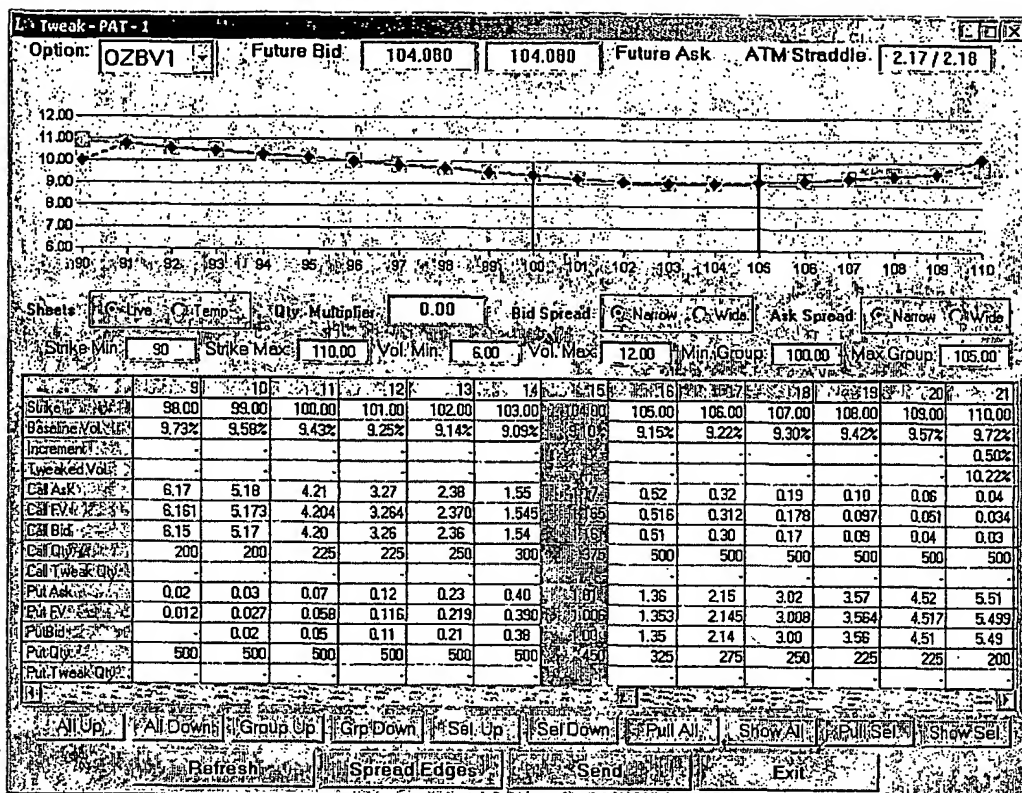 Tweak - PAT - 1
Option: OZBV1 Future Bid 104.080 104.080 Future Ask ATM Straddle 2.17 / 2.18
12.00
11.00
10.00
9.00
8.00
7.00
6.00
90 91 92 93 94 95 96 97 98 99 100 101 102 103 104 105 106 107 108 109 110
Sheets Live Temp Qty. Multiplier 0.00 Bid Spread Narrow Wide Ask Spread Narrow Wide
Strike Min: 90 Strike Max: 110.00 Vol. Min: 6.00 Vol. Max: 12.00 Min Group: 100.00 Max Group: 105.00
9 10 11 12 13 14 15 16 17 18 19 20 21
Strike 98.00 99.00 100.00 101.00 102.00 103.00 104.00 105.00 106.00 107.00 108.00 109.00 110.00
Baseline Vol. 9.73% 9.58% 9.43% 9.25% 9.14% 9.09% 9.15% 9.22% 9.30% 9.42% 9.57% 9.72%
Increment - - - - - - - - - - - 0.50%
Tweaked Vol. - - - - - - - - - - - 10.22%
Call Ask 6.17 5.18 4.21 3.27 2.38 1.55 0.52 0.32 0.19 0.10 0.06 0.04
Call FV 6.161 5.173 4.204 3.264 2.370 1.545 0.516 0.312 0.178 0.097 0.051 0.034
Call Bid 6.15 5.17 4.20 3.26 2.36 1.54 0.51 0.30 0.17 0.09 0.04 0.03
Call Qty 200 200 225 225 250 300 375 500 500 500 500 500 500
Call Tweak Qty. - - - - - - - - - - - -
Put Ask 0.02 0.03 0.07 0.12 0.23 0.40 1.36 2.15 3.02 3.57 4.52 5.51
Put FV 0.012 0.027 0.058 0.116 0.219 0.390 1.006 1.353 2.145 3.008 3.564 4.517 5.499
Put Bid - 0.02 0.05 0.11 0.21 0.38 1.35 2.14 3.00 3.56 4.51 5.49
Put Qty 500 500 500 500 500 500 450 325 275 250 225 225 200
Put Tweak Qty. - - - - - - - - - - - -
All Up All Down Group Up Grp Down Sel. Up Sel Down Pull All Show All Pull Sel Show Sel
Refresh Spread Edges Send Exit